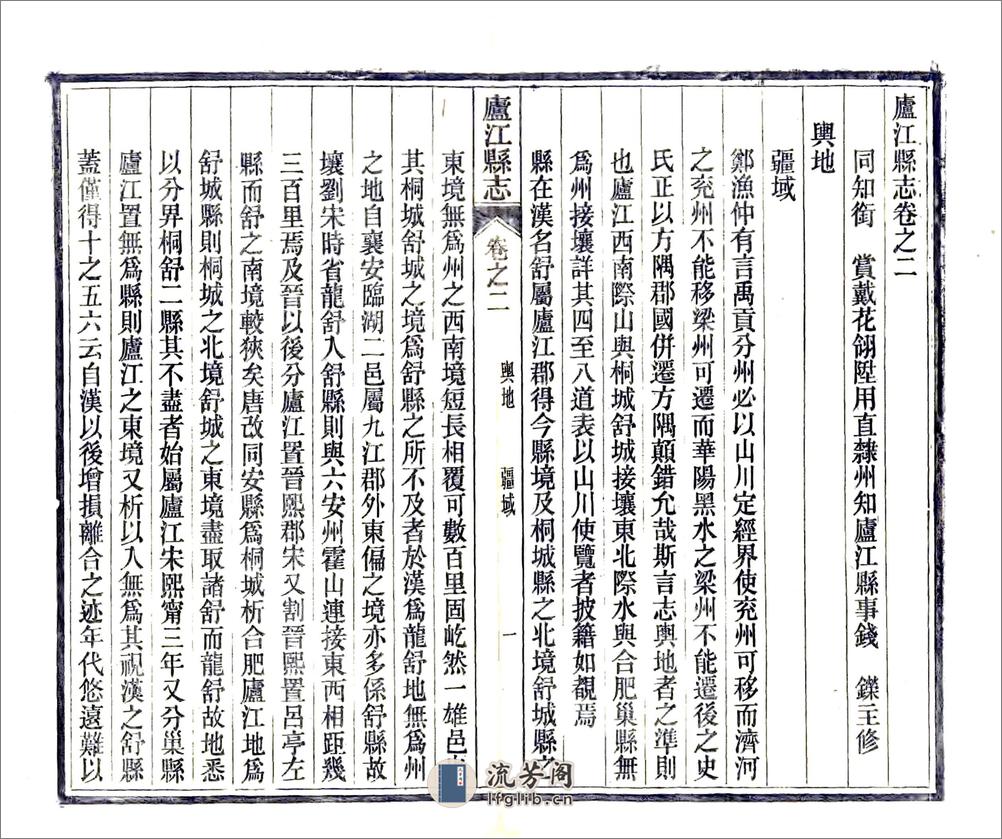 廬江縣志卷之二
同知銜　賞戴花翎陞用直隸州知廬江縣事錢　鑅主修
輿地
疆域
鄭漁仲有言禹貢分州必以山川定經界使兗州可移而濟河
之兗州不能移梁州可遷而華陽黑水之梁州不能遷後之史
氏正以方隅郡國併遷方隅顛錯允哉斯言志輿地者之準則
也廬江西南際山與桐城舒城接壤東北際水與合肥巢縣無
爲州接壤詳其四至八道表以山川使覽者披籍如覩焉
縣在漢名舒屬廬江郡得今縣境及桐城縣之北境舒城縣之
廬江縣志
卷之二
輿地
疆域
一
東境無爲州之西南境短長相覆可數百里固屹然一雄邑
其桐城舒城之境爲舒縣之所不及者於漢爲龍舒地無爲州
之地自襄安臨湖二邑屬九江郡外東偏之境亦多係舒縣故
壤劉宋時省龍舒入舒縣則與六安州霍山連接東西相距幾
三百里焉及晉以後分廬江置晉熙郡宋又割晉熙置呂亭左
縣而舒之南境較狹矣唐改同安縣爲桐城析合肥廬江地爲
舒城縣則桐城之北境舒城之東境盡取諸舒而龍舒故地悉
以分界桐舒二縣其不盡者始屬廬江宋熙甯三年又分巢縣
廬江置無爲縣則廬江之東境又析以入無爲其視漢之舒縣
蓋僅得十之五六云自漢以後增損離合之迹年代悠遠難以
流芳阁
lfglib.cn